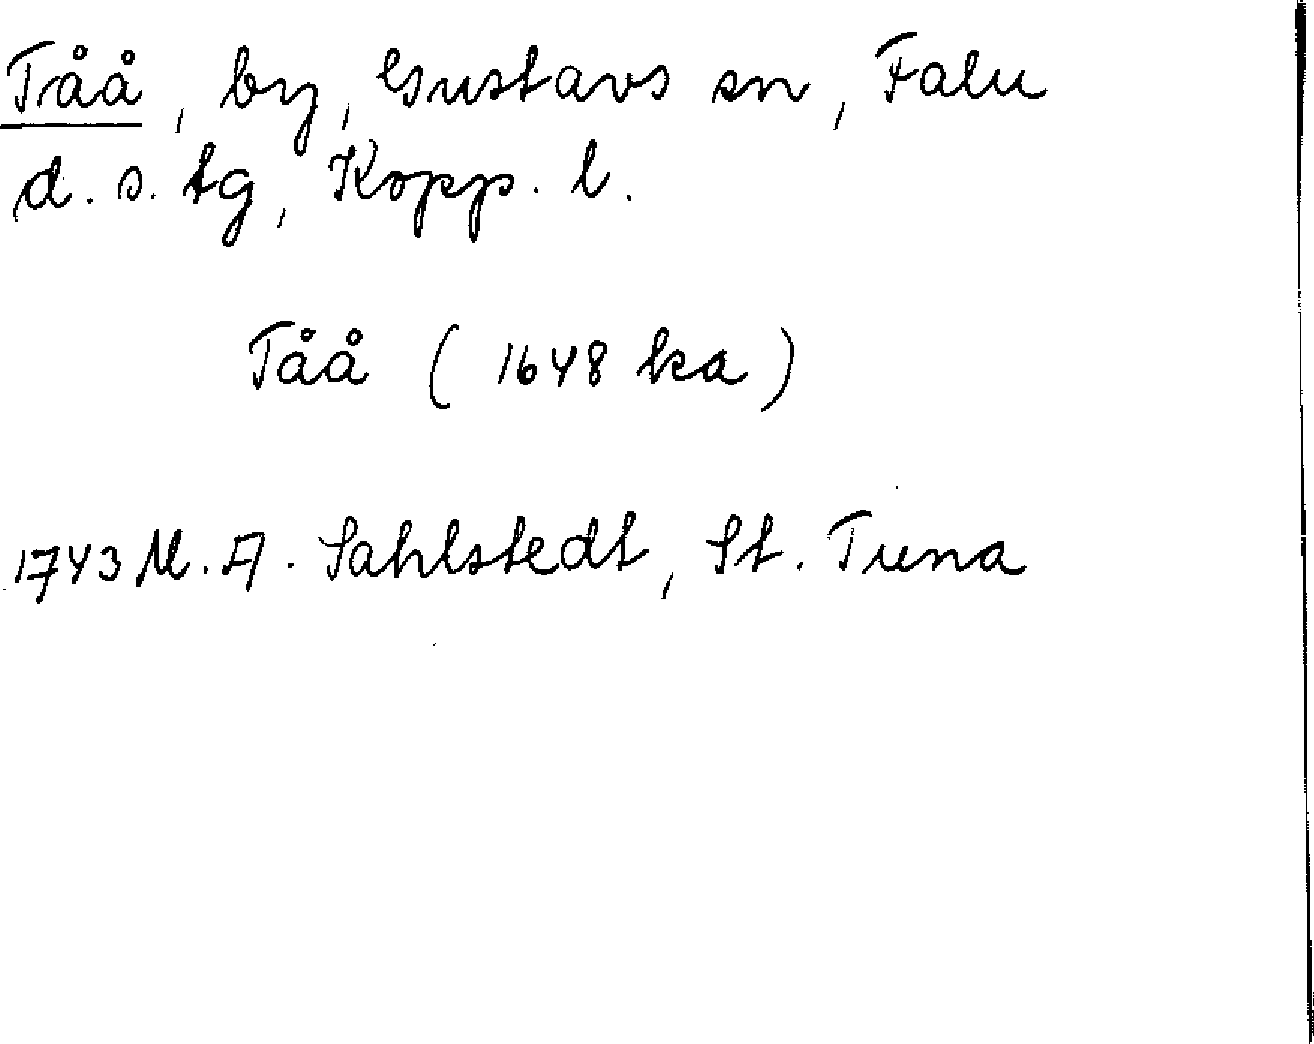 Tåå, by, Gustavs sn, Falu
d. s. tg, Kopp. l.
Tåå (1648 ka)
1743 M. A. Sahlstedt, St. Tuna